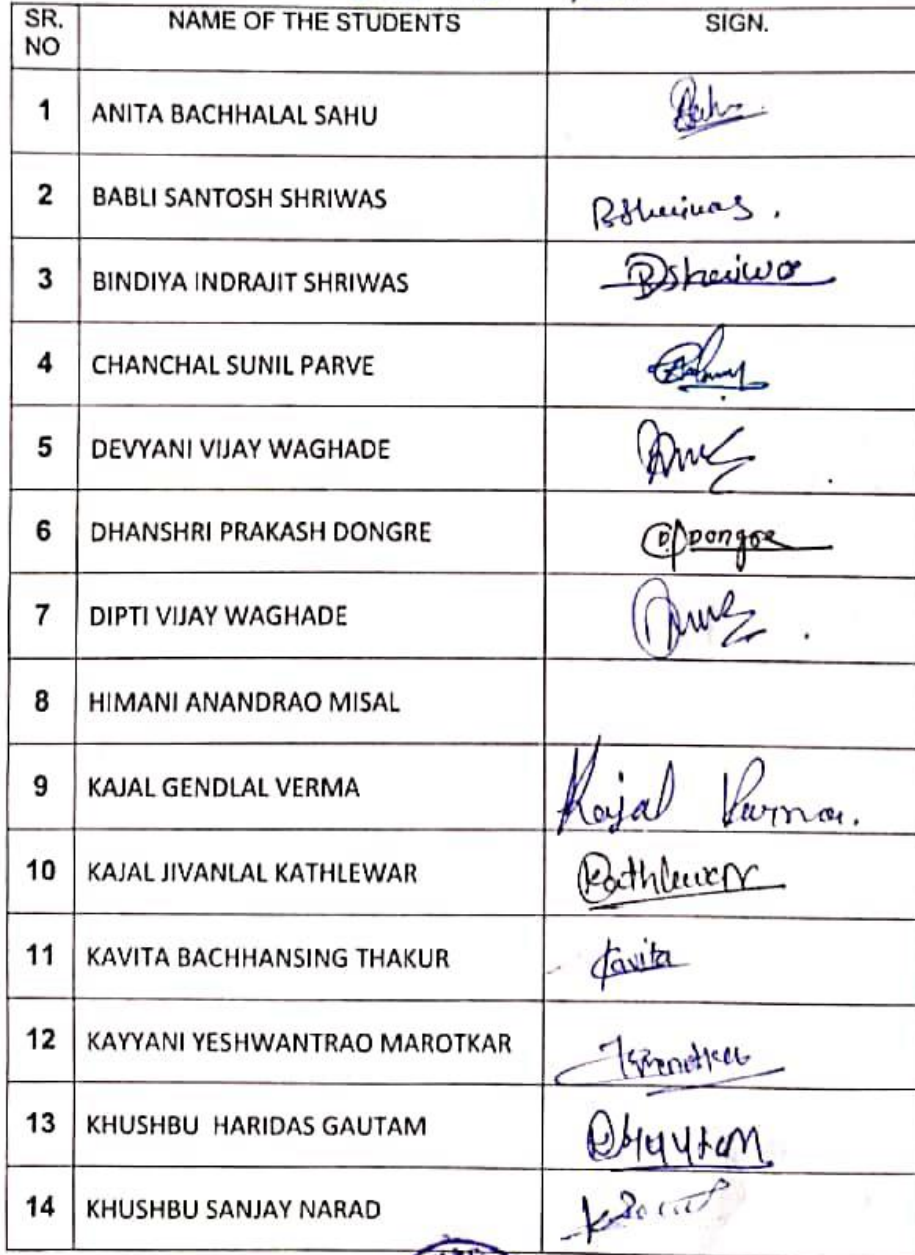 SR. NO NAME OF THE STUDENTS SIGN.
1 ANITA BACHHALAL SAHU
2 BABLI SANTOSH SHRIWAS BShriwas.
3 BINDIYA INDRAJIT SHRIWAS
4 CHANCHAL SUNIL PARVE
5 DEVYANI VIJAY WAGHADE
6 DHANSHRI PRAKASH DONGRE
7 DIPTI VIJAY WAGHADE
8 HIMANI ANANDRAO MISAL
9 KAJAL GENDLAL VERMA Kajal Verma.
10 KAJAL JIVANLAL KATHLEWAR Kathlewar
11 KAVITA BACHHANSING THAKUR Kavita
12 KAYYANI YESHWANTRAO MAROTKAR
13 KHUSHBU HARIDAS GAUTAM
14 KHUSHBU SANJAY NARAD